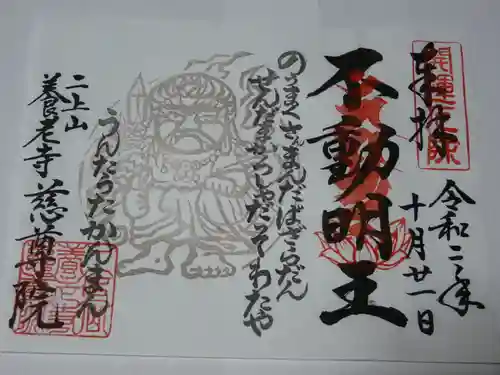 奉拝
令和二年
十月廿一日
不動明王
のうまくさんまんだばざらだん
せんだまかろしゃだそわたや
うんたらたかんまん
二上山
養老寺 慈尊院